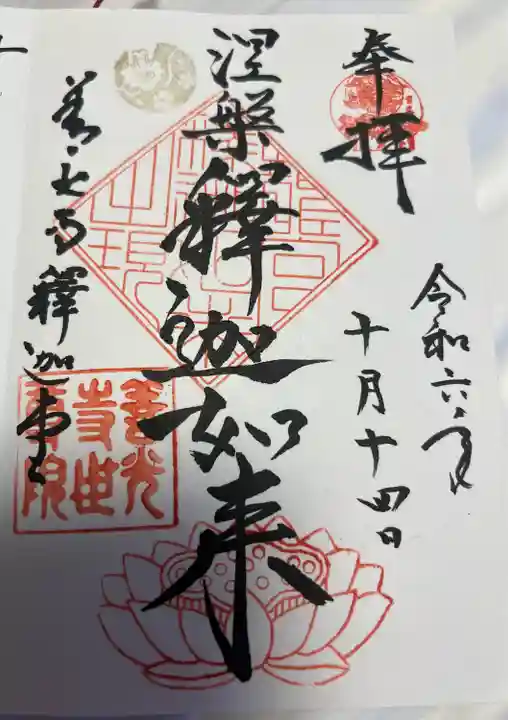 奉拝
令和六年
十月十四日
涅槃釋迦如来
善光寺釋迦堂
善光
寺世
尊院